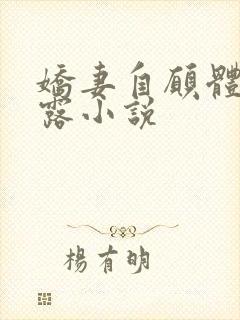 嬌妻自願體
露小説
楊有明